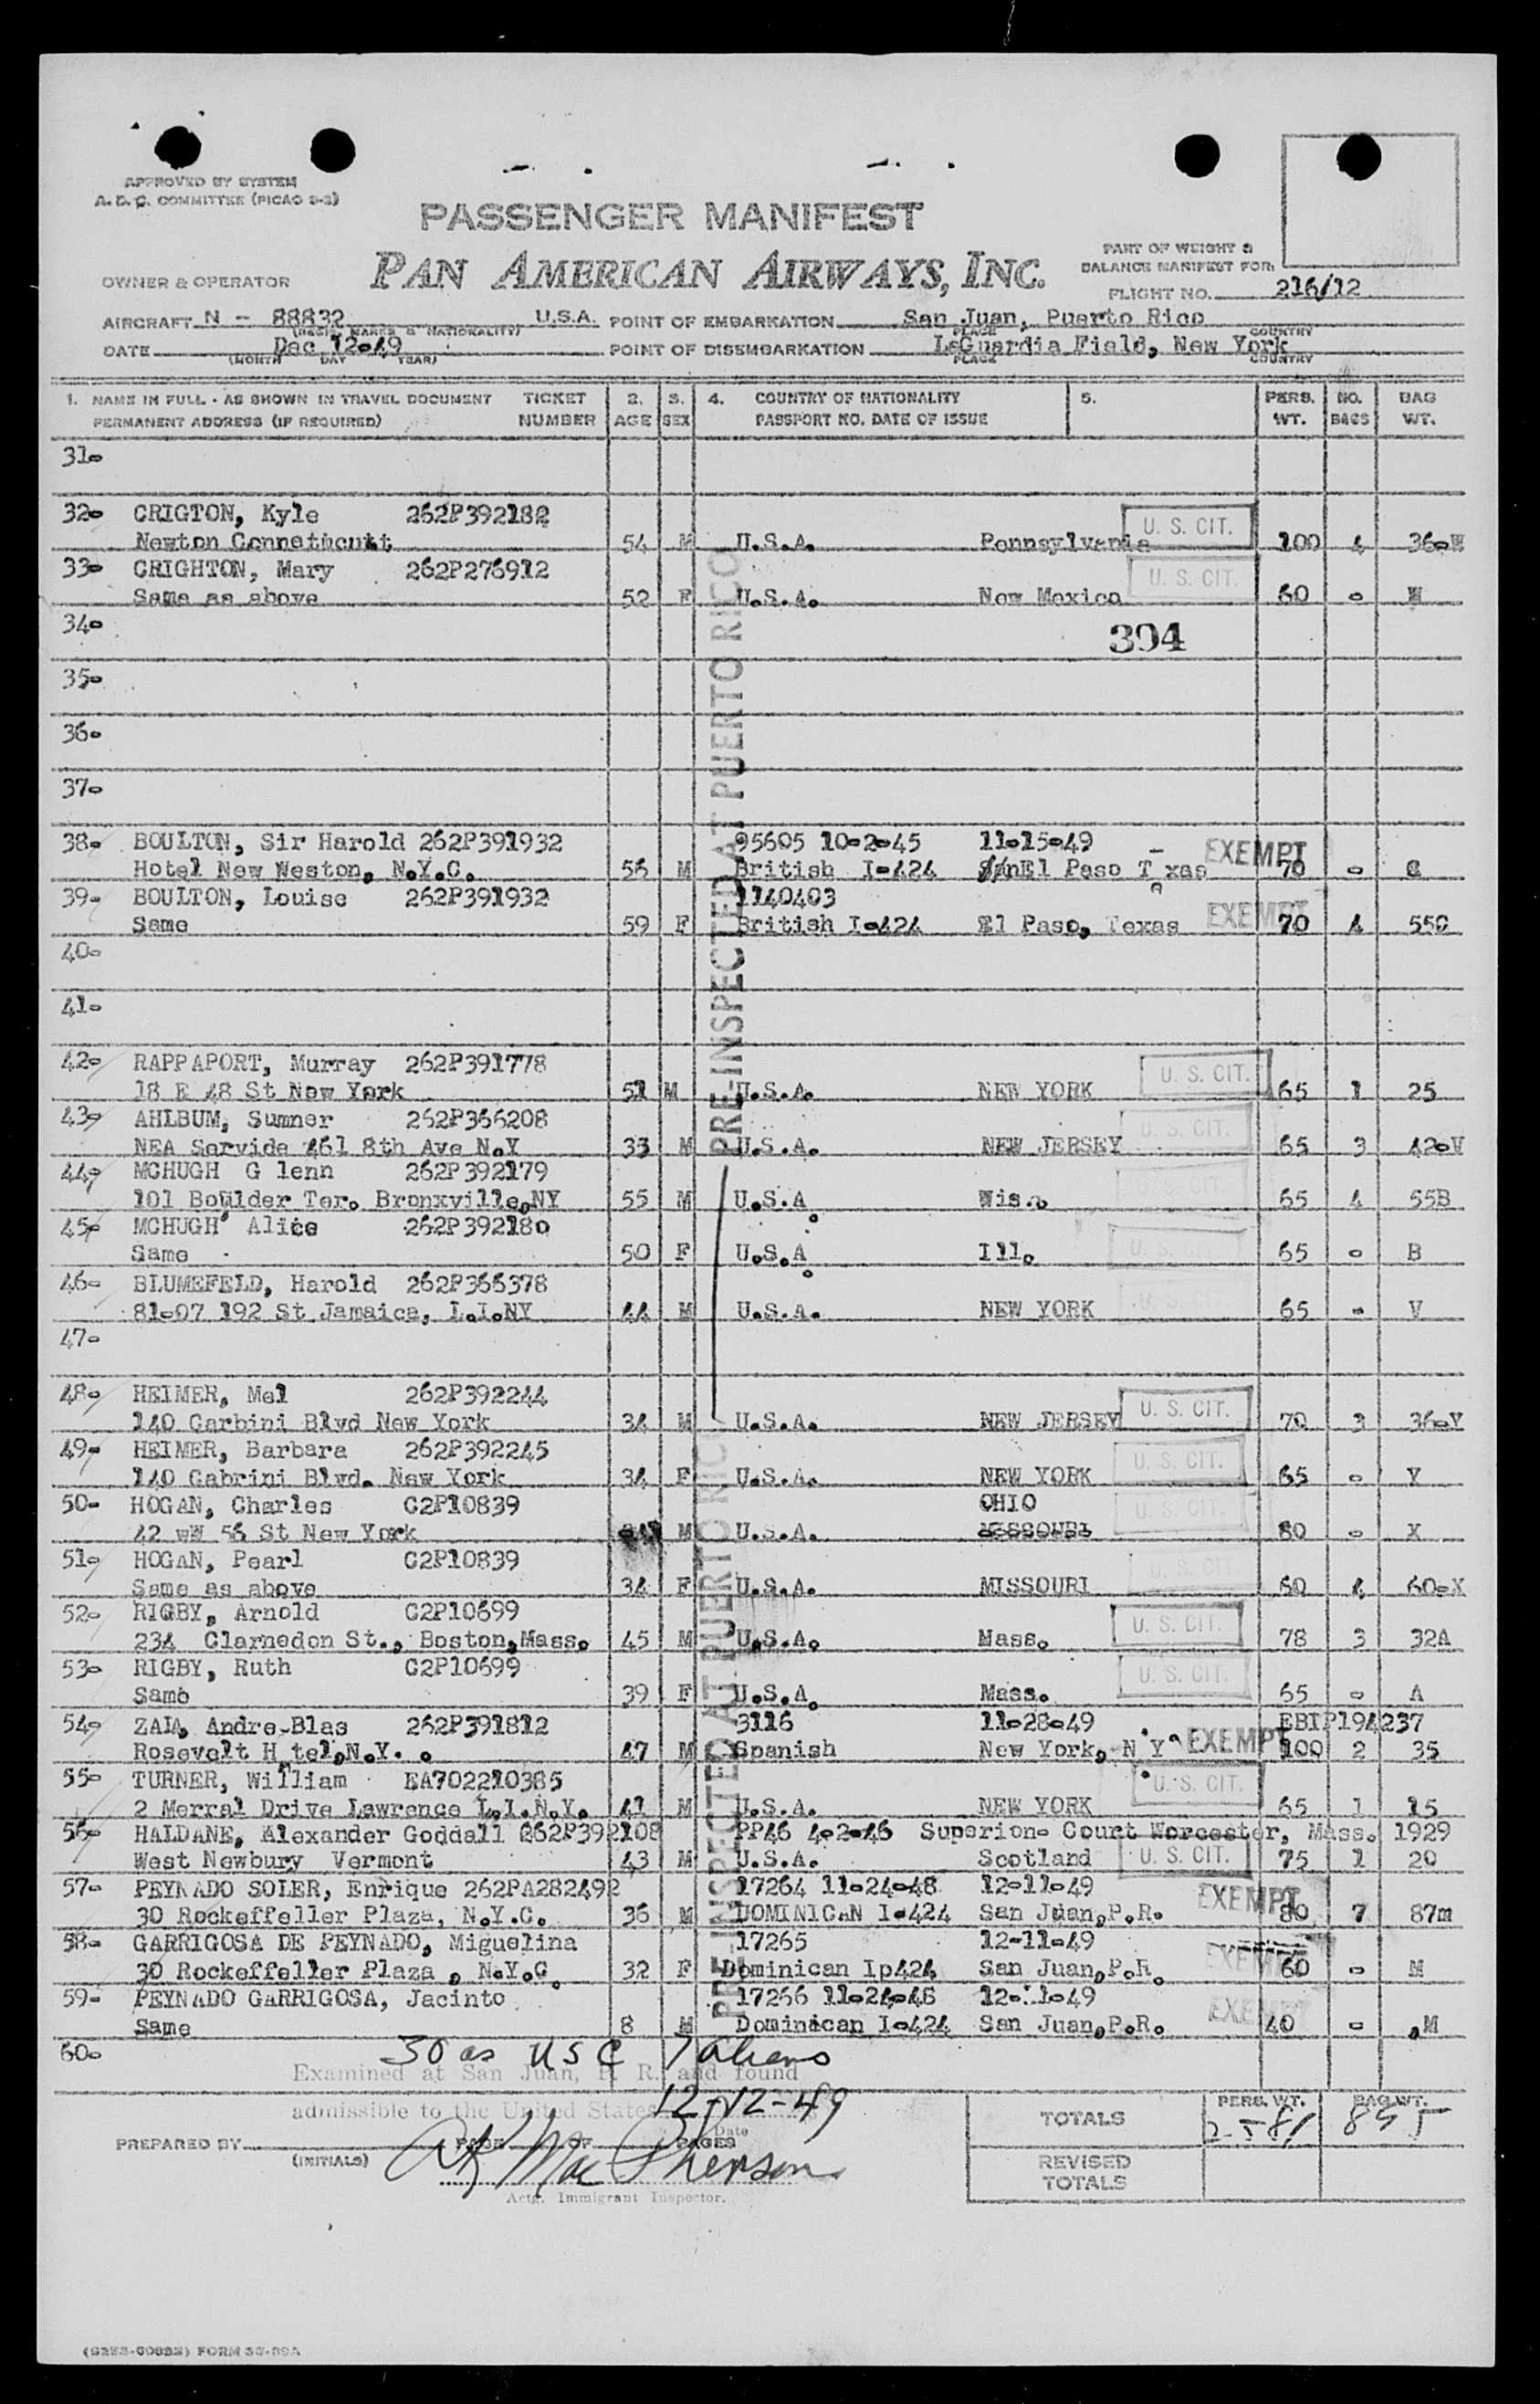 APPROVED BY SYSTEM
A. D. C. COMMITTEE (PICAO 2-3)
PASSENGER MANIFEST
PAN AMERICAN AIRWAYS, INC.
OWNER & OPERATOR
PART OF WEIGHT &
BALANCE MANIFEST FOR:
FLIGHT NO. 216/12
AIRCRAFT N - 88832 U.S.A. POINT OF EMBARKATION San Juan, Puerto Rico
(REGIS. MARKS & NATIONALITY) PLACE COUNTRY
DATE Dec 12-49 POINT OF DISEMBARKATION LaGuardia Field, New York
(MONTH DAY YEAR) PLACE COUNTRY
1. NAME IN FULL - AS SHOWN IN TRAVEL DOCUMENT TICKET 2. 3. 4. COUNTRY OF NATIONALITY 5. PERS. NO. BAG
PERMANENT ADDRESS (IF REQUIRED) NUMBER AGE SEX PASSPORT NO. DATE OF ISSUE WT. BAGS WT.
31-
32- CRIGTON, Kyle 262P392182 U. S. CIT.
Newton Connethcutt 54 M U.S.A. Pennsylvania 100 4 36-W
33- CRIGHTON, Mary 262P276912 U. S. CIT.
Same as above 52 F U.S.A. New Mexico 60 - W
34- 394
35-
36-
37-
38- BOULTON, Sir Harold 262P391932 95605 10-2-45 11-15-49 EXEMPT
Hotel New Weston, N.Y.C. 56 M British I-424 El Paso T xas 70 - C
39- BOULTON, Louise 262P391932 1140403 EXEMPT
Same 59 F British I-424 El Paso, Texas 70 4 55C
40-
41-
PRE-INSPECTED AT PUERTO RICO
42- RAPPAPORT, Murray 262P391778 U. S. CIT.
18 E 48 St New York 51 M U.S.A. NEW YORK 65 1 25
43- AHLBUM, Sumner 262P366208 U. S. CIT.
NEA Servide 461 8th Ave N.Y 33 M U.S.A. NEW JERSEY 65 3 42-V
44- MCHUGH G lenn 262P392179
101 Boulder Ter. Bronxville,NY 55 M U.S.A Wis. 65 4 55B
45- MCHUGH Alice 262P392180 U. S. CIT.
Same 50 F U.S.A Ill. 65 - B
46- BLUMEFELD, Harold 262P366378 U. S. CIT.
81-07 192 St Jamaica, L.I.NY 44 M U.S.A. NEW YORK 65 - V
47-
48- HEIMER, Mel 262P392244 U. S. CIT.
140 Carbini Blvd New York 34 M U.S.A. NEW JERSEY 70 3 36-Y
49- HEIMER, Barbara 262P392245 U. S. CIT.
140 Cabrini Blvd. New York 34 F U.S.A. NEW YORK 65 - Y
50- HOGAN, Charles C2P10839 OHIO U. S. CIT.
42 wW 56 St New York M U.S.A. MISSOURI 80 - X
51- HOGAN, Pearl C2P10839 U. S. CIT.
Same as above 34 F U.S.A. MISSOURI 60 4 60-X
52- RIGBY, Arnold C2P10699 U. S. CIT.
234 Clarnedon St., Boston,Mass. 45 M U.S.A. Mass. 78 3 32A
53- RIGBY, Ruth C2P10699 U. S. CIT.
Same 39 F U.S.A. Mass. 65 - A
54- ZAIA, Andre-Blas 262P391812 3116 11-28-49 EBIP194237
Rosevelt H tel,N.Y. 47 M Spanish New York, N Y EXEMPT 100 2 35
55- TURNER, William EA702210385 U. S. CIT.
2 Merral Drive Lawrence L.I.N.Y. 41 M U.S.A. NEW YORK 65 1 15
56- HALDANE, Alexander Goddall 262P392108 PP46 4-2-46 Superion- Court Worcester, Mass. 1929
West Newbury Vermont 43 M U.S.A. Scotland U. S. CIT. 75 1 20
57- PEYNADO SOLER, Enrique 262PA282492 17264 11-24-48 12-11-49 EXEMPT
30 Rockeffeller Plaza, N.Y.C. 36 M DOMINICAN I-424 San Juan,P.R. 80 7 87m
58- GARRIGOSA DE PEYNADO, Miguelina 17265 12-11-49 EXEMPT
30 Rockeffeller Plaza , N.Y.C. 32 F Dominican Ip424 San Juan,P.R. 60 - M
59- PEYNADO GARRIGOSA, Jacinto 17266 11-24-48 12-11-49 EXEMPT
Same 8 M Dominican I-424 San Juan,P.R. 40 - ,M
PRE-INSPECTED AT PUERTO RICO
60- 30 as USC 7 aliens
Examined at San Juan, P. R. and found
admissible to the United States 12-12-49
Date
PREPARED BY PAGE OF PAGES
(INITIALS)
MacPherson
Actg. Immigrant Inspector.
TOTALS PERS. WT. 2581 BAG WT. 895
REVISED
TOTALS